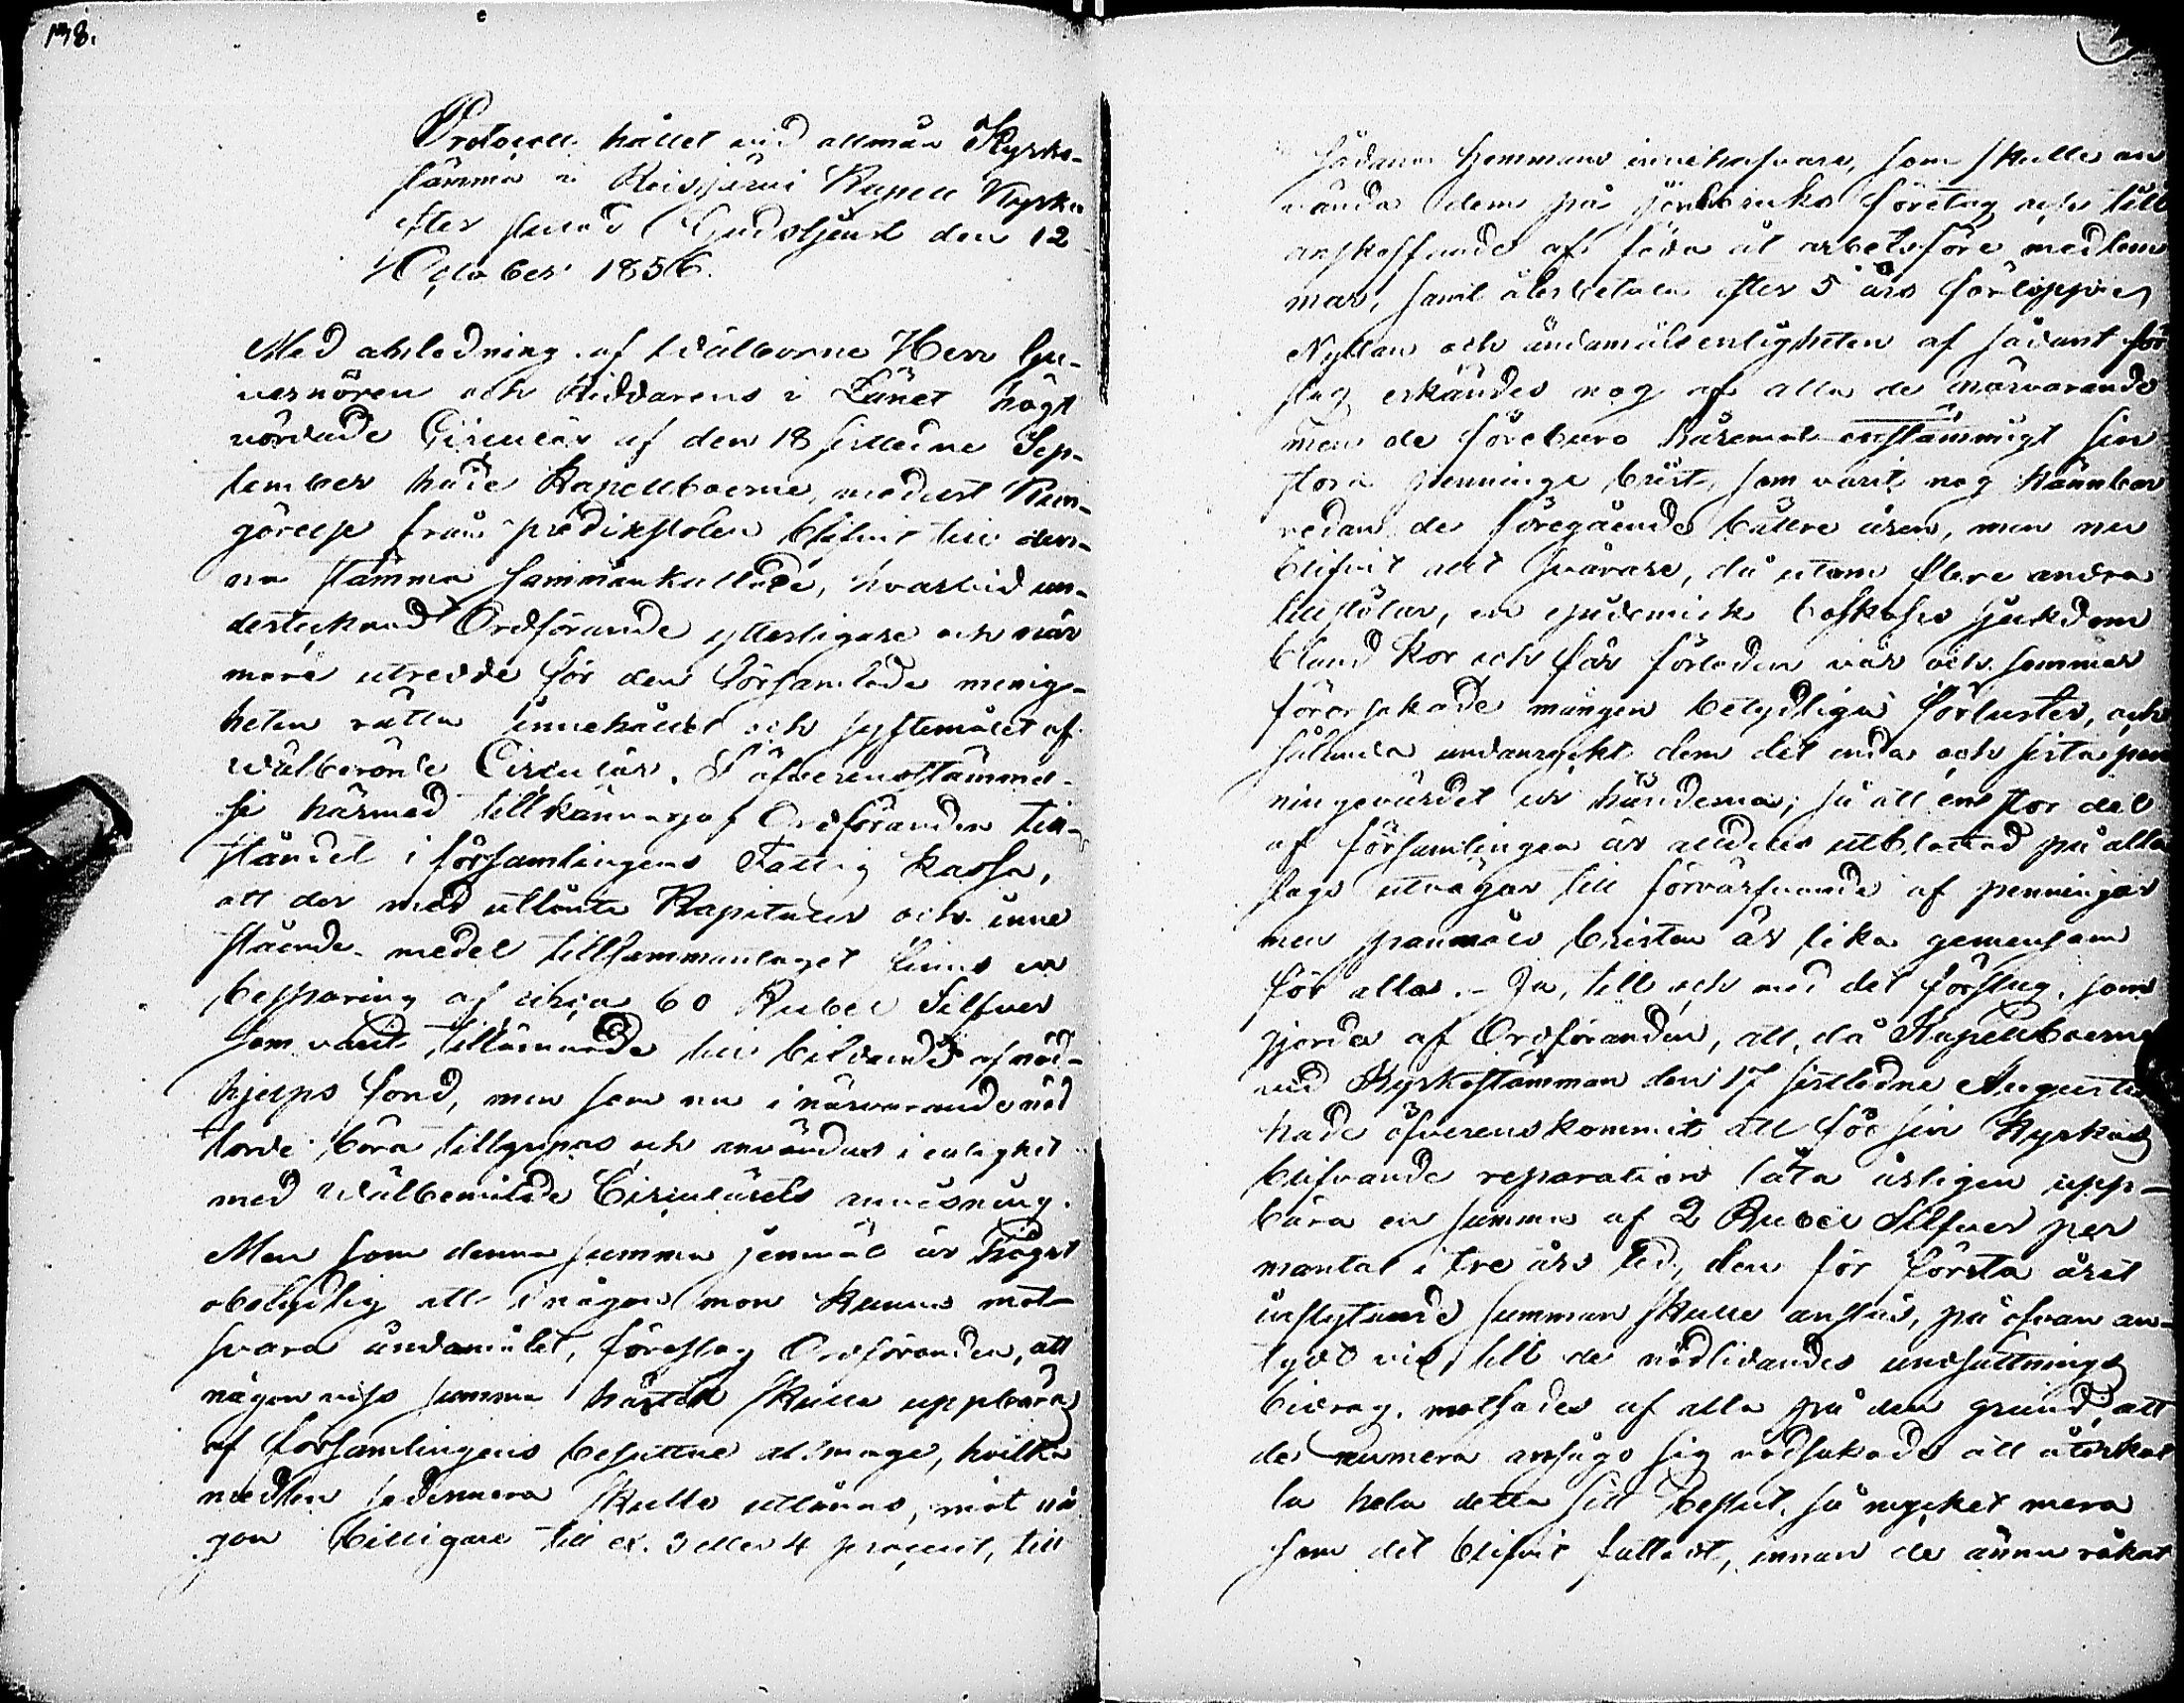 138.
Protocoll hållet vid allmän Kyrko-
stämma i Reisjärvi Kapell Kyrka
efter slutad Gudstjenst den 12
October 1856.
Med anledning af Wälborne Herr Gu-
vernören och Riddarens i Länet högt
vördade Circulär af den 18 sistledne Sep-
tember hade Kapellboerne, medelst Kun-
görelse från predikstolen blifvit till den-
na stämma sammankallade, hvarvid un-
dertecknad Ordförande ytterligare och när
mare utredde för den församlade menig-
heten rätta innehållet och syftemålet af
wälberörde Circulär. I öfverensstämmel-
se härmed tillkännagaf Ordföranden till-
ståndet i församlingens Fattig kassa,
att der med utlånta Kapitaler och inne
stående medel tillsammantaget finns en
besparing af circa 60 Rubel Silfver
som varit tillämnade till bildande af nöd-
hjelps fond, men som nu i närvarande nöd
torde böra tillgripas och användas i enlighet
med Wälbemälde Circulärets anvisning.
Men som denna summa jemväl är högst
obetydlig att i någon mon kunna mot-
svara ändamålet, föreslog Ordföranden, att
någon viss summa härtill skulle uppbäras
af församlingens besuttne allmoge, hvilka
medlen sedermera skulle utlånas, mot nå
gon billigare till ex. 3 eller 4 procent, till
sådana Hemmans innehafvare, som skulle an
vända dem på jordbruks företag och till
anskaffande af föda åt arbetsföre medlem
mar, samt återbetala efter 5 års förlopp.
Nyttan och ändamålsenligheten af sådant för
slag erkändes nog af alla de närvarande
men de föreburo häremot enstämmigt sin
stora pennings brist, som varit nog kännbar
redan de föregående bättre åren, men nu
blifvit allt svårare, då utom flere andra
tillstötar, en epidemisk boskaps sjukdom
bland kor och får förleden vår och sommar
förorsakade mången betydliga förluster, och
sålunda undanryckt dem det enda och sista pen
ningevärdet ur händerna; så att en stor del
af församlingen är alldeles utblottad på alla
slags utvägar till förvärfvande af penningar
men spanmåls bristen är lika gemensam
för alla. – Ja, till och med det förslag, som
gjordes af Ordföranden, att, då Kapellboerne
vid Kyrkostämman den 17 sistledne Augusti
hade öfverenskommit att för sin Kyrkas
blifvande reparation låta årligen upp-
bära en summa af 2 Rubel Silfver per
mantal i tre års tid, den för första året
inflytande summan skulle anslås, på ofvan an-
tydt vis, till de nödlidandes undsättnings
bidrag, motsades af alla på den grund, att
de numera ansågo sig nödsakade att återkal
la hela detta sitt beslut, så mycket mera
som det blifvit fattadt, innan de ännu råkat